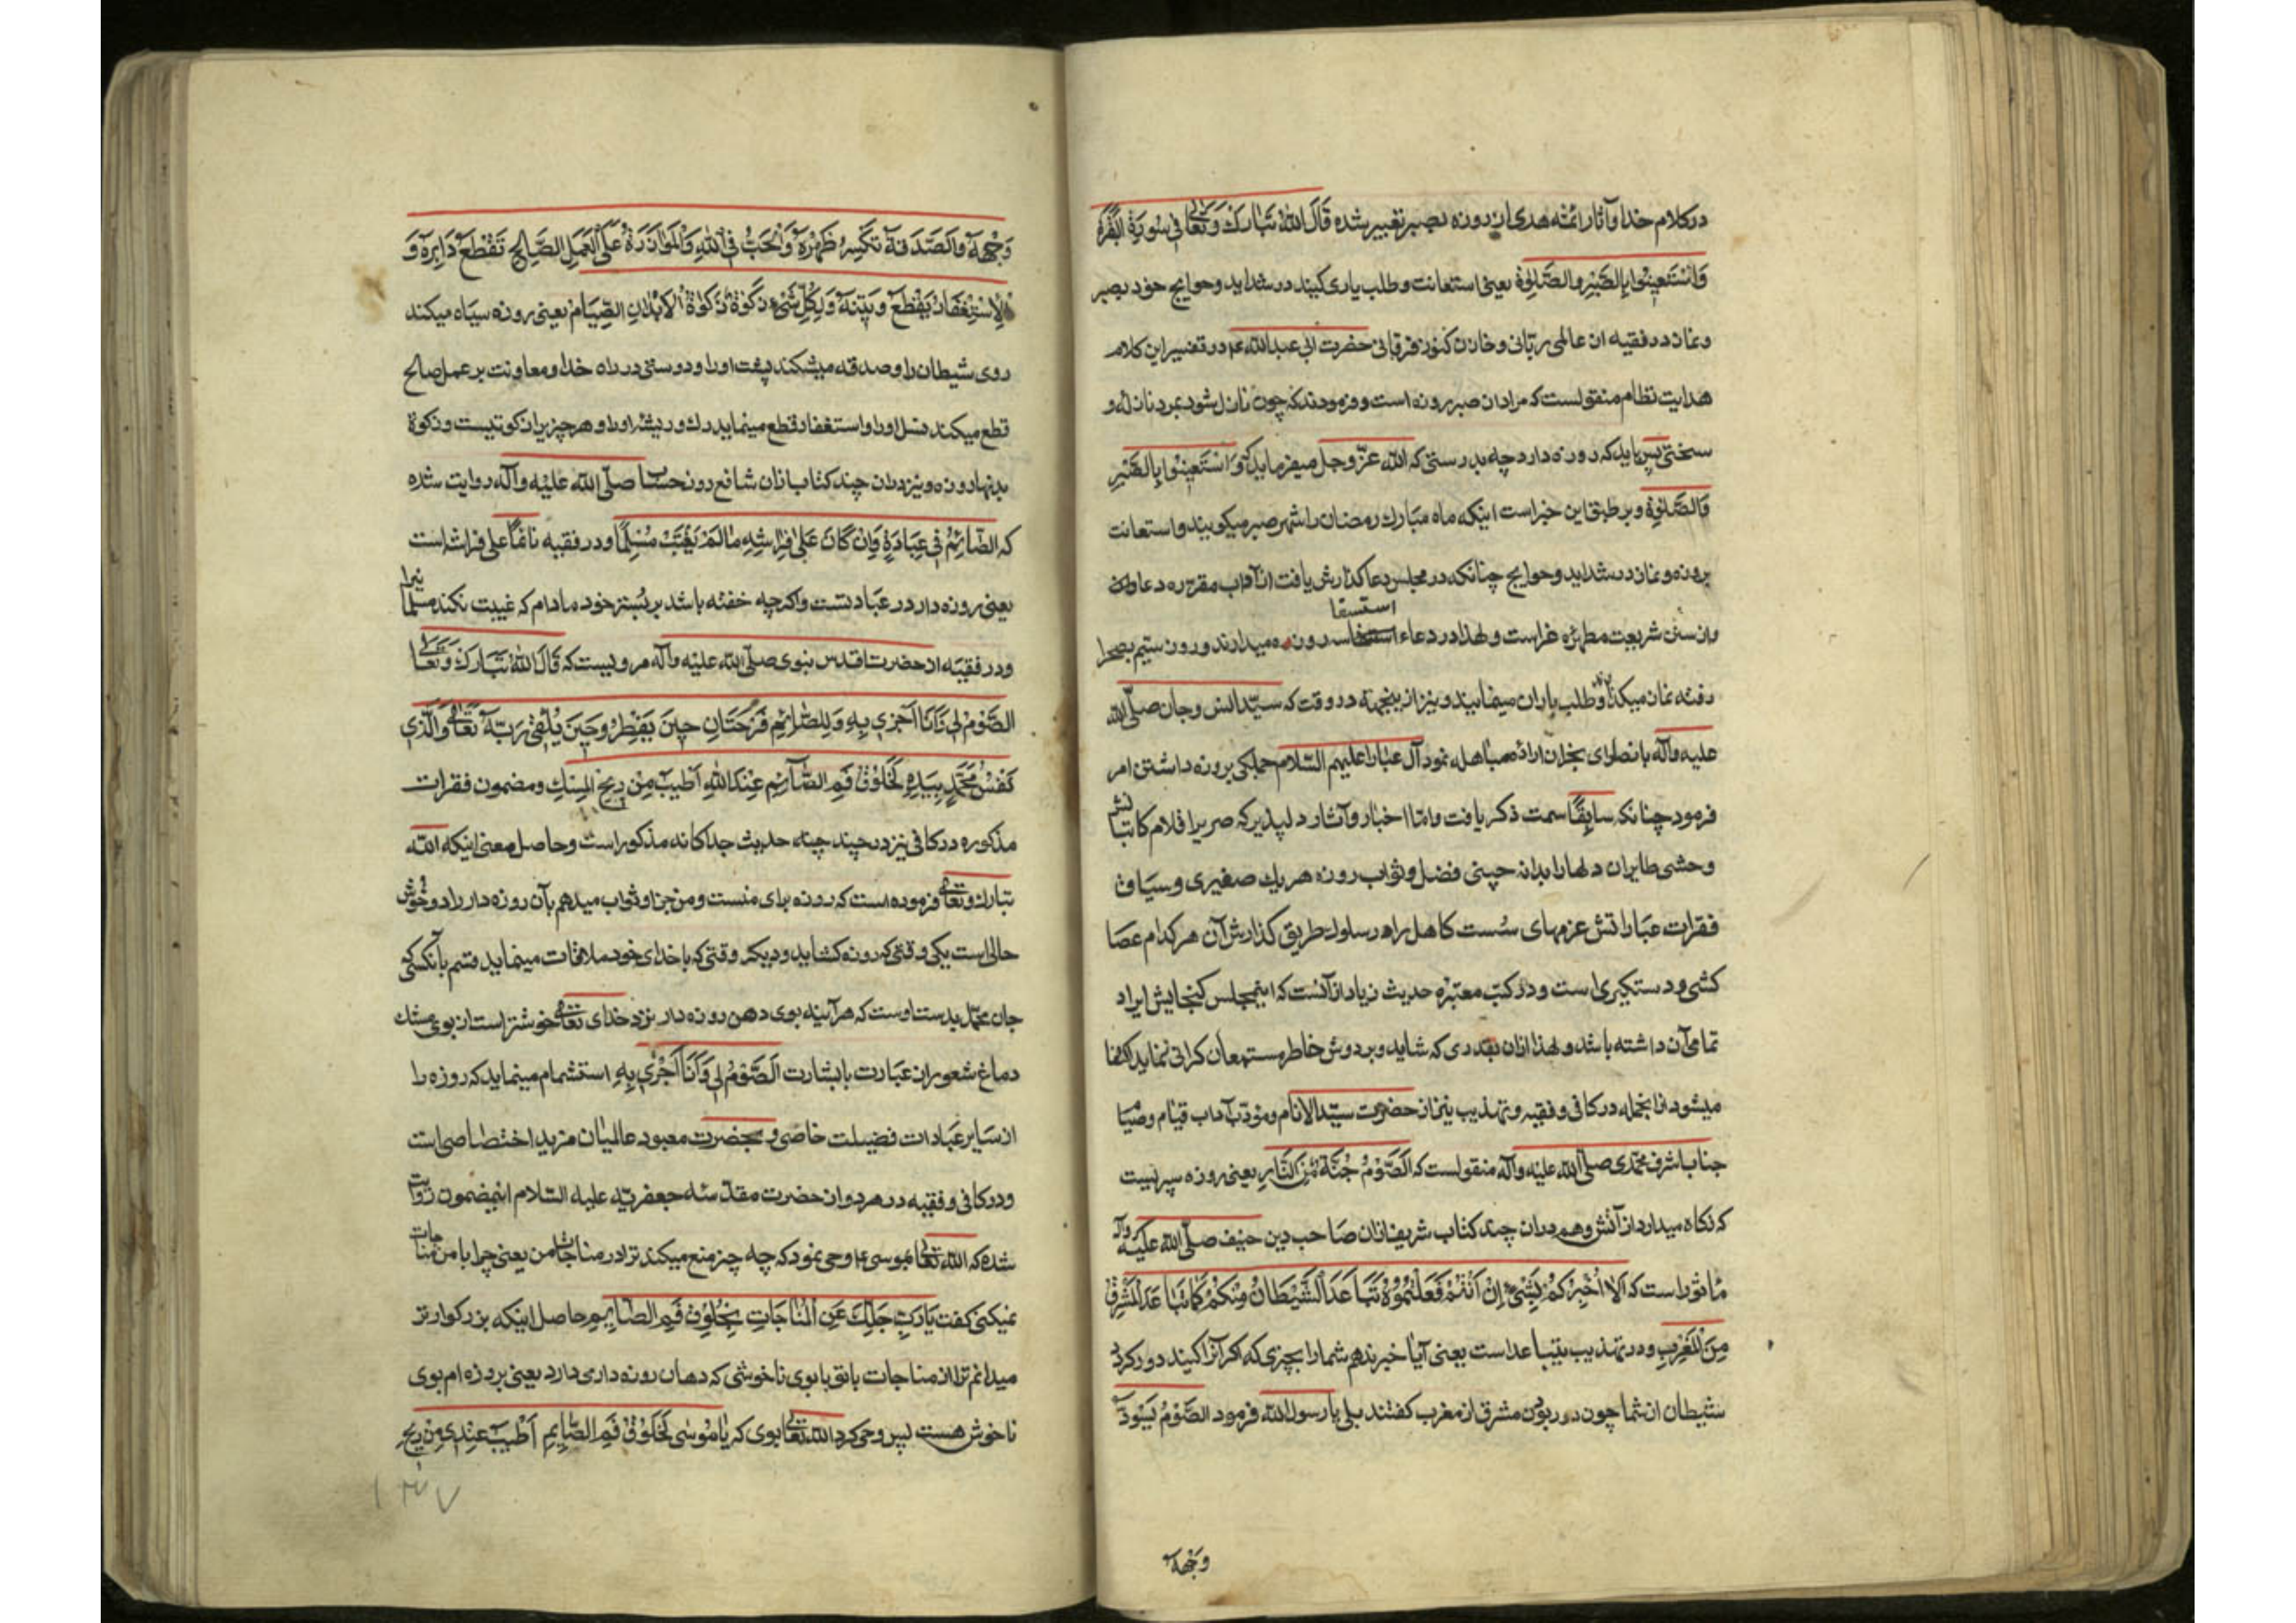 در کلام خدا و آثار ائمّه هدی از روزه بصبر تعبیر شده قَالَ اللهُ تَبَارَكَ وَتَعَالٰی فِی سُورَةِ الْبَقَرَةِ
وَاسْتَعِینُوا بِالصَّبْرِ وَالصَّلٰوةِ یعنی استعانت و طلب یاری کنید در شداید و حوایج خود بصبر
و نماز در فقیه از عالم ربّانی و خازن کنوز فرقانی حضرت ابی عبدالله ع در تفسیر این کلام
هدایت نظام منقولست که مراد از صبر روزه است و فرمودند که چون نازل شود بمرد نازله و
سختی پس باید که روزه دارد چه بدرستی که الله عزّ وجل میفرماید که وَاسْتَعِینُوا بِالصَّبْرِ
وَالصَّلٰوةِ و بر طبق این خبر است اینکه ماه مبارك رمضان را شهر صبر میکویند و استعانت
بروزه و نماز در شداید و حوایج چنانکه در مجلس دعا کذارش یافت از آداب مقرره دعاوات
و از سنن شریعت مطهّره غراست و لهذا در دعاء استسقا سه روزه میدارند و روز سیّم بصحرا
رفته نماز میکنند و طلب باران مینمایند و نیز از اینجهة در وقت که سیّد انس و جان صلّی الله
علیه وآله با نصارای نجران اراده مباهله نمود آل عبا را علیهم السّلام جملکی بروزه داشتن امر
فرمود چنانکه سابقًا سمت ذکر یافت و امّا اخبار و آثار دلپذیر که صریر اقلام کاتبانش
وحشی طایران دلها را بدانه چینی فضل و ثواب روزه هر یك صفیری و سیاق
فقرات عباراتش عزمهای سُست کاهل راه رسلوك طریق کذارش آن هر کدام عصا
کشی و دستکیری است و در کتب معتبره حدیث زیاد از آنست که اینمجلس کنجایش ایراد
تمامی آن داشته باشد و لهذا از آن بقدری که شاید و بر دوش خاطر مستمعان کرانی ننماید اکتفا
میشود از انجمله در کافی و فقیه و تهذیب نیز از حضرت سیّدالانام و مؤدّب آداب قیام و صیام
جناب اشرف محمّدی صلّی الله علیه وآله منقولست که اَلصَّوْمُ جُنَّةٌ مِنَ النَّارِ یعنی روزه سپریست
که نکاه میدارد از آتش و هم در آن چند کتاب شریف از آن صاحب دین حنیف صلّی الله علیه وآله
مأثور است که اَلَا اُخْبِرُکُمْ بِشَیْءٍ اِنْ اَنْتُمْ فَعَلْتُمُوهُ تَبَاعَدَ الشَّیْطَانُ مِنْکُمْ کَمَا تَبَاعَدَ الْمَشْرِقُ
مِنَ الْمَغْرِبِ و در تهذیب یتباعد است یعنی آیا خبر ندهم شما را بچیزی که اکر آنرا کنید دور کردد
شیطان از شما چون دور بودن مشرق از مغرب کفتند بلی یا رسول الله فرمود الصَّوْمُ یُسَوِّدُ
وَجْهَهُ
وَجْهَهُ وَالصَّدَقَةُ تَکْسِرُ ظَهْرَهُ وَالْحُبُّ فِی اللهِ وَالْمُوَازَرَةُ عَلَی الْعَمَلِ الصَّالِحِ تَقْطَعُ دَابِرَهُ وَ
الْاِسْتِغْفَارُ یَقْطَعُ وَتِینَهُ وَلِکُلِّ شَیْءٍ زَکٰوةٌ وَزَکٰوةُ الْاَبْدَانِ الصِّیَامُ یعنی روزه سیاه میکند
روی شیطان را و صدقه میشکند پشت او را و دوستی در راه خدا و معاونت بر عمل صالح
قطع میکند نسل او را و استغفار قطع مینماید رك و ریشه او را و هر چیز را زکوتیست و زکوة
بدنها روزه و نیز در آن چند کتاب از آن شافع روز حساب صلّی الله علیه وآله روایت شده
که الصَّائِمُ فِی عِبَادَةٍ وَاِنْ کَانَ عَلٰی فِرَاشِهِ مَا لَمْ یَغْتَبْ مُسْلِمًا و در فقیه نائمًا علی فراشه است
یعنی روزه دار در عبادتست و اکرچه خفته باشد بر بستر خود مادام که غیبت نکند مسلمانیرا
و در فقیه از حضرت اقدس نبوی صلّی الله علیه وآله مرویست که قَالَ اللهُ تَبَارَكَ وَتَعَالٰی
الصَّوْمُ لِی وَاَنَا اَجْزِی بِهِ وَلِلصَّائِمِ فَرْحَتَانِ حِینَ یُفْطِرُ وَحِینَ یَلْقٰی رَبَّهُ تَعَالٰی وَالَّذِی
نَفْسُ مُحَمَّدٍ بِیَدِهِ لَخُلُوفُ فَمِ الصَّائِمِ عِنْدَ اللهِ اَطْیَبُ مِنْ رِیحِ الْمِسْكِ و مضمون فقرات
مذکوره در کافی نیز در چند چند حدیث جداکانه مذکور است و حاصل معنی اینکه الله
تبارك و تعالی فرموده است که روزه برای منست و من جزا و ثواب میدهم بآن روزه دار را دو خوش
حالی است یکی وقتی که روزه کشاید و دیکر وقتی که با خدای خود ملاقات مینماید قسم بآنکسی که
جان محمّد بدست اوست که هر آینه بوی دهن روزه دار نزد خدای تعالی خوشتر است از بوی مشك
دماغ شعور از عبارت با بشارت اَلصَّوْمُ لِی وَاَنَا اَجْزِی بِهِ استشمام مینماید که روزه را
از سایر عبادات فضیلت خاصی و بحضرت معبود عالمیان مزید اختصاصی است
و در کافی و فقیه در هر دو از حضرت مقدّسه جعفریّه علیه السّلام اینمضمون روایت
شده که الله تعالی بموسی ع وحی نمود که چه چیز منع میکند ترا در مناجات من یعنی چرا با من مناجات
نمیکنی کفت یَا رَبِّ اُجِلُّكَ عَنِ الْمُنَاجَاتِ لِخُلُوفِ فَمِ الصَّائِمِ حاصل اینکه بزرکوارتر
میدانم ترا از مناجات با تو با بوی ناخوشی که دهان روزه داری دارد یعنی بر دزه ام بوی
ناخوش هست پس وحی کرد الله تعالی بوی که یَا مُوسٰی لَخُلُوفُ فَمِ الصَّائِمِ اَطْیَبُ عِنْدِی مِنْ رِیحِ
۱۳۷